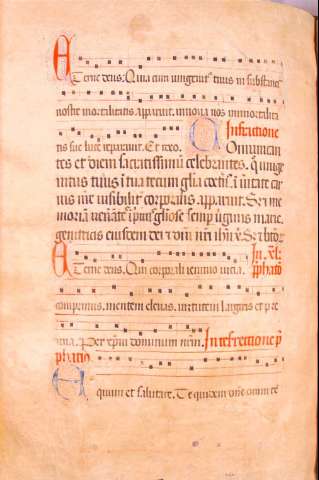 Aterne deus. Quia cum unigenit' tuus in substancia
nostre mortalitatis apparuit. in nova nos immortalita
tis sue luce reparavit. Et ideo. In fractione
Communican
tes et diem sacratissimum celebrantes. quo unige
nitus tuus in tua tecum glia coetn'. in veritate car
nis nre visibilit' corporalis apparuit. Sed et me
moriam venerantes in primis gliose semp virginis marie.
genitricis eiusdem dei et dni nri ihu xpi. Sed et btor
In
Aterne deus. Qui corporali ieiunio vicia
comprimis. mentem elevas. virtutem largiris et pre
mia. Per xpm dominum nrm.
phatio
Equum et salutare. Te quidem omni te